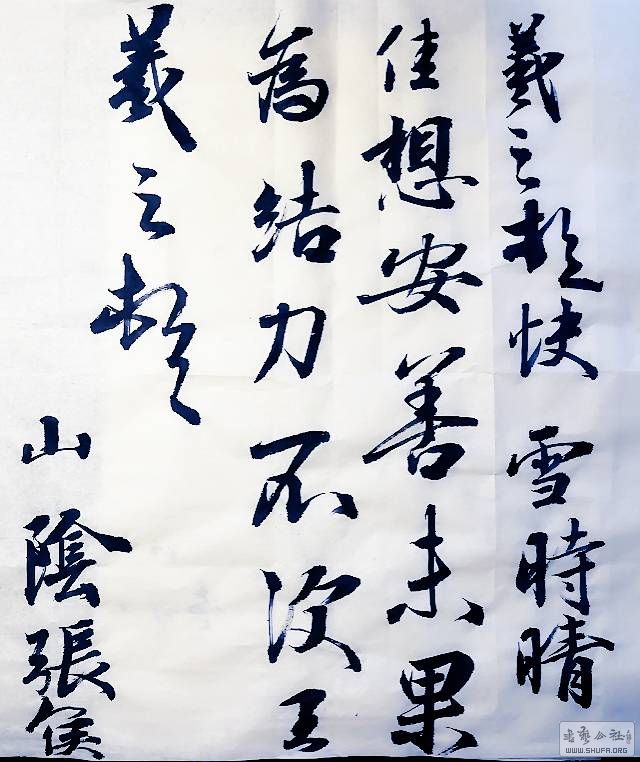 羲之頓快雪時晴
佳想安善未果
為結力不次王
羲之頓
山陰張侯
WWW.SHUFA.ORG